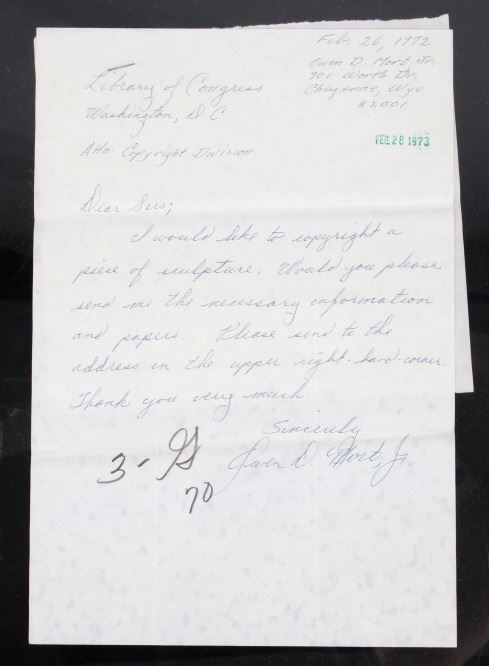 Feb. 26, 1972
Owen D. Mort Jr.
901 Worth Dr.
Cheyenne, Wyo
82001
Library of Congress
Washington, D C
Attn: Copyright Division
FEB 28 1973
Dear Sirs;
I would like to copyright a
piece of sculpture. Would you please
send me the necessary information
and papers. Please send to the
address in the upper right-hand-corner.
Thank you very much.
Sincerely
Owen D. Mort, Jr.
3 -
70